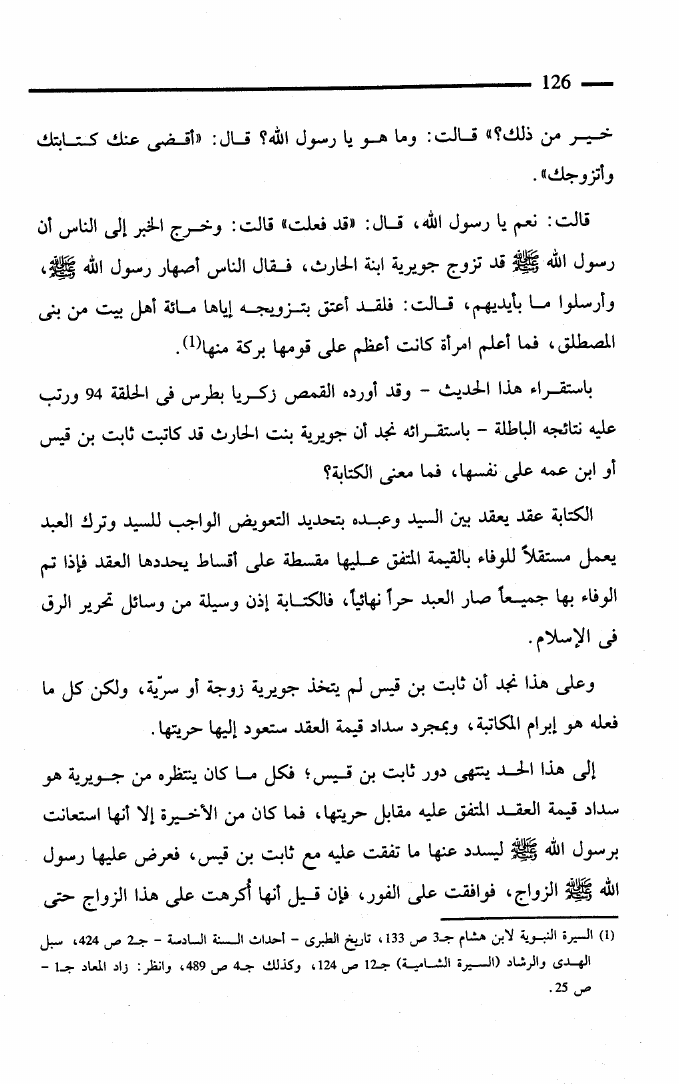 126
خـيـر من ذلك؟» قـالت: وما هـو يا رسول الله؟ قـال: «أقـضى عنك كـتـابتك
وأتزوجك».
قالت: نعم يا رسول الله، قـال: «قد فعلت» قالت: وخـرج الخبر إلى الناس أن
رسول الله ﷺ قد تزوج جويرية ابنة الحارث، فـقال الناس أصهار رسول الله ﷺ،
وأرسلوا مـا بأيديهم، قـالت: فلقـد أعتق بتـزويجـه إياها مـائة أهل بيت من بنى
المصطلق، فما أعلم امرأة كانت أعظم على قومها بركة منها(1).
باستقـراء هذا الحديث - وقد أورده القمص زكـريا بطرس فى الحلقة 94 ورتب
عليه نتائجه الباطلة - باستقـرائه نجد أن جويرية بنت الحارث قد كاتبت ثابت بن قيس
أو ابن عمه على نفسها، فما معنى الكتابة؟
الكتابة عقد يعقد بين السيد وعبـده بتحديد التعويض الواجب للسيد وترك العبد
يعمل مستقلاً للوفاء بالقيمة المتفق عـليها مقسطة على أقساط يحددها العقد فإذا تم
الوفاء بها جميـعاً صار العبد حراً نهائياً، فالكتـابة إذن وسيلة من وسائل تحرير الرق
فى الإسلام.
وعلى هذا نجد أن ثابت بن قيس لم يتخذ جويرية زوجة أو سرّية، ولكن كل ما
فعله هو إبرام المكاتبة، وبمجرد سداد قيمة العقد ستعود إليها حريتها.
إلى هذا الحـد ينتهى دور ثابت بن قـيس؛ فكل مـا كان ينتظره من جـويرية هو
سداد قيمة العقـد المتفق عليه مقابل حريتها، فما كان من الأخـيرة إلا أنها استعانت
برسول الله ﷺ ليسدد عنها ما تفقت عليه مع ثابت بن قيس، فعرض عليها رسول
الله ﷺ الزواج، فوافقت على الفور، فإن قـيل أنها أُكرهت على هذا الزواج حتى
(1) السيرة النبـوية لابن هشام جـ3 ص 133، تاريخ الطبرى - أحداث السنة السادسة - جـ2 ص 424، سبل
الهـدى والرشاد (السيرة الشـامية) جـ12 ص 124، وكذلك جـ4 ص 489، وانظر: زاد المعاد جـ1 -
ص 25.